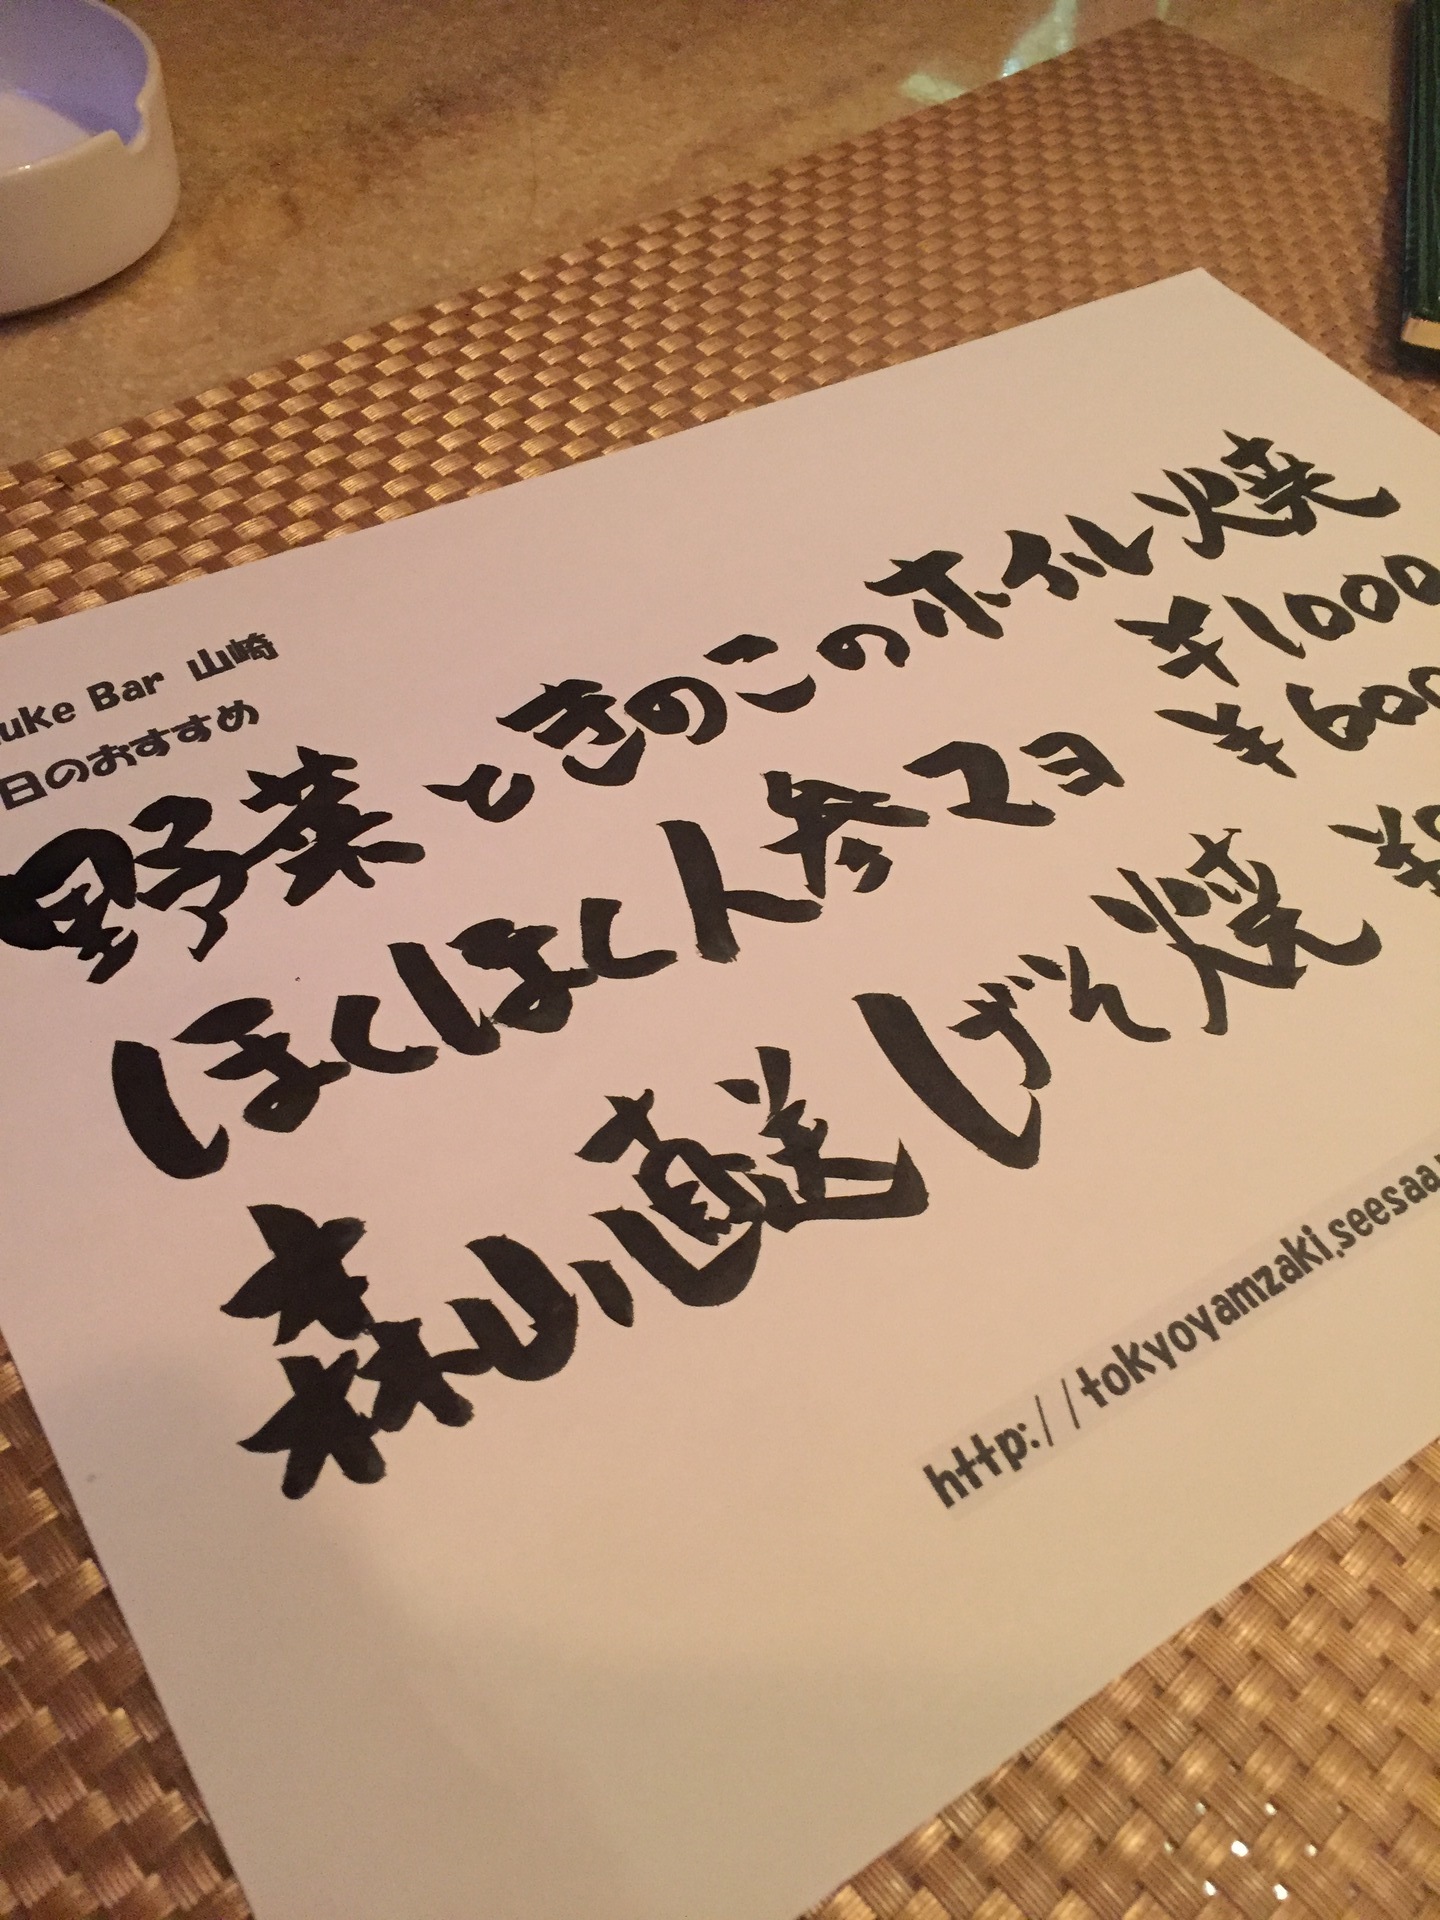 uke Bar 山崎
日のおすすめ
野菜ときのこのホイル焼
¥1000
ほくほく人参マヨ ¥600
森山直送 げそ焼 ¥
http://tokyoyamzaki.seesaa.